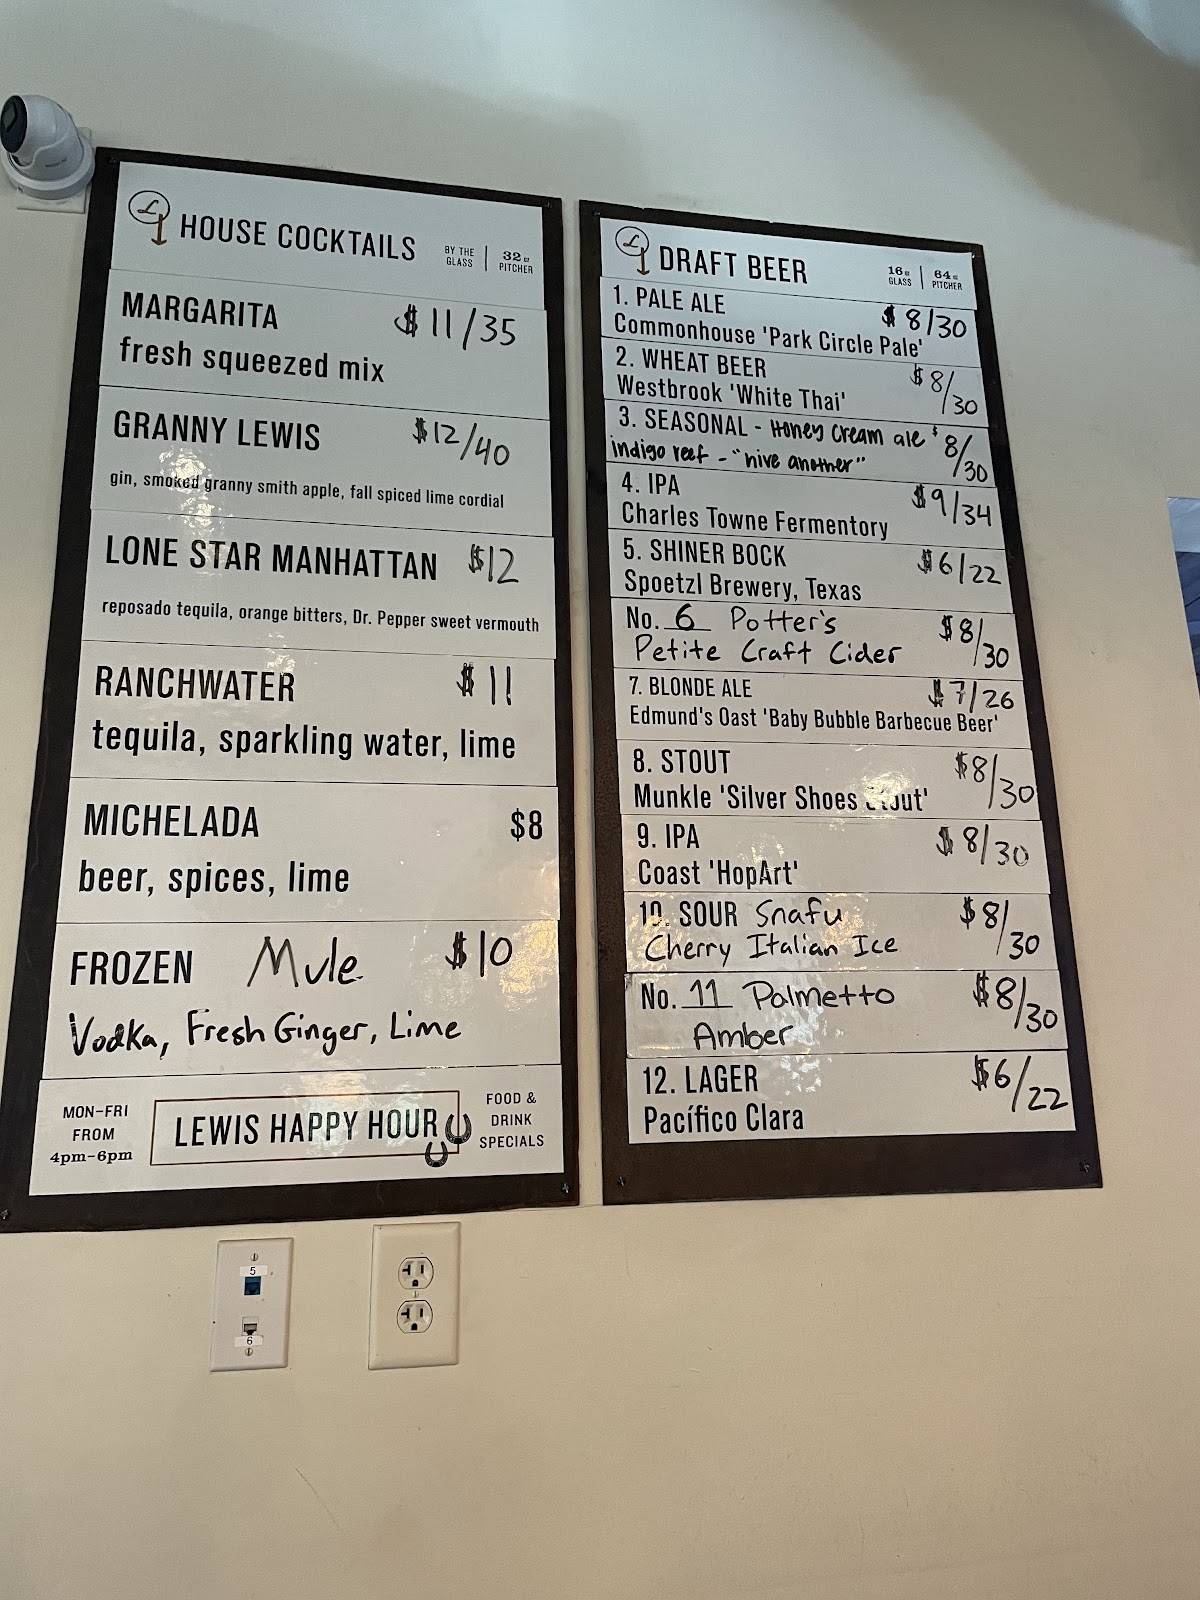 L
HOUSE COCKTAILS
BY THE GLASS | 32oz PITCHER
MARGARITA $11/35
fresh squeezed mix
GRANNY LEWIS $12/40
gin, smoked granny smith apple, fall spiced lime cordial
LONE STAR MANHATTAN $12
reposado tequila, orange bitters, Dr. Pepper sweet vermouth
RANCHWATER $11
tequila, sparkling water, lime
MICHELADA $8
beer, spices, lime
FROZEN Mule $10
Vodka, Fresh Ginger, Lime
MON-FRI
FROM
4pm-6pm
LEWIS HAPPY HOUR
FOOD &
DRINK
SPECIALS
L
DRAFT BEER
16oz GLASS | 64oz PITCHER
1. PALE ALE $8/30
Commonhouse 'Park Circle Pale'
2. WHEAT BEER $8/30
Westbrook 'White Thai'
3. SEASONAL - Honey Cream ale $8/30
indigo reef - "hive another"
4. IPA $9/34
Charles Towne Fermentory
5. SHINER BOCK $6/22
Spoetzl Brewery, Texas
No. 6 Potter's $8/30
Petite Craft Cider
7. BLONDE ALE $7/26
Edmund's Oast 'Baby Bubble Barbecue Beer'
8. STOUT $8/30
Munkle 'Silver Shoes Stout'
9. IPA $8/30
Coast 'HopArt'
10. SOUR Snafu $8/30
Cherry Italian Ice
No. 11 Palmetto $8/30
Amber
12. LAGER $6/22
Pacífico Clara
5
6